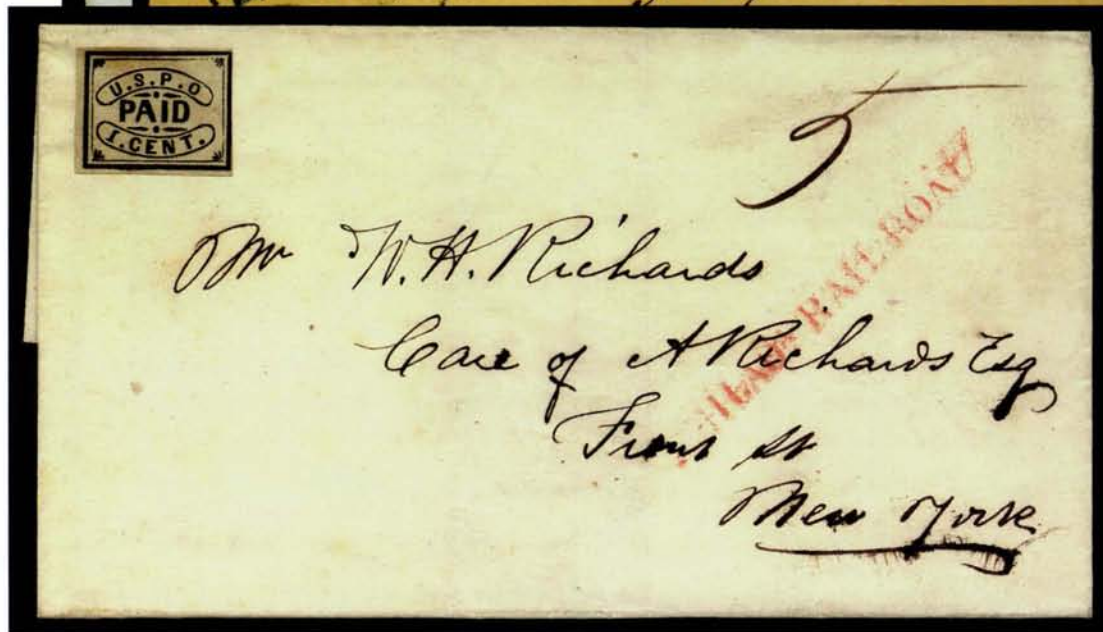 U.S.P.O
PAID
1.CENT.
5
RAILROAD
Mr W. H. Richards
Care of A Richards Esq
Front St
New York